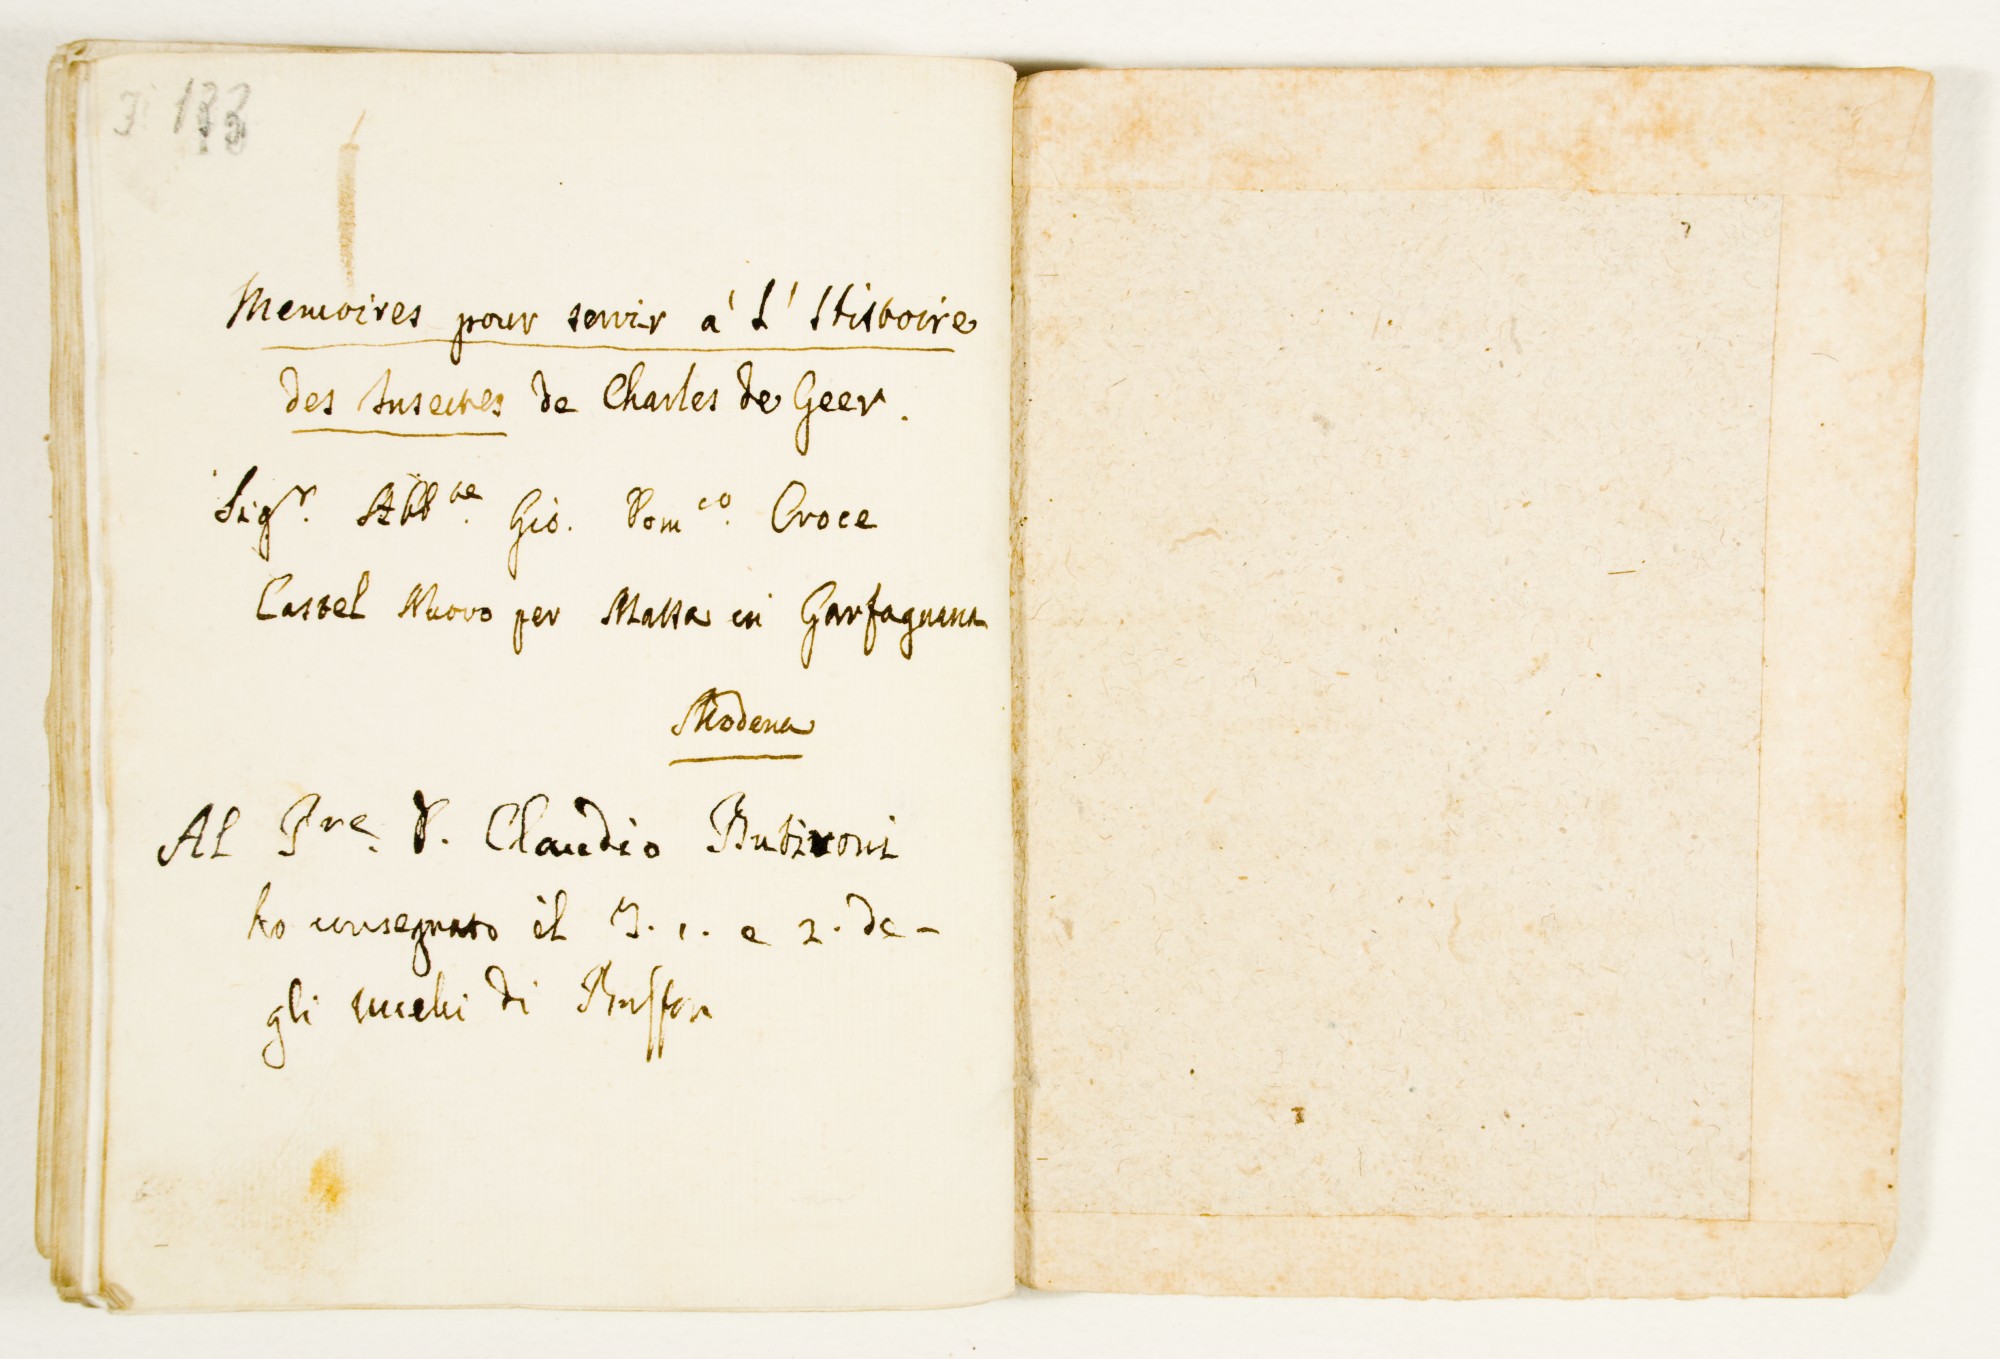 133
Memoires pour servir a' L' Histoire
des Insectes de Charles de Geer.
Sigr. Abbte. Gio. Domco. Croce
Castel Nuovo per Massa in Garfagnana
Modena
Al Pre. D. Claudio Butironi
ho consegnato il T. 1. e 2. de-
gli uccelli di Buffon